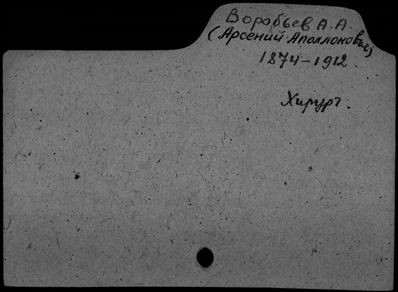 Воробьев А.А.
(Арсений Аполлонович)
1874–1912.
Хирург.